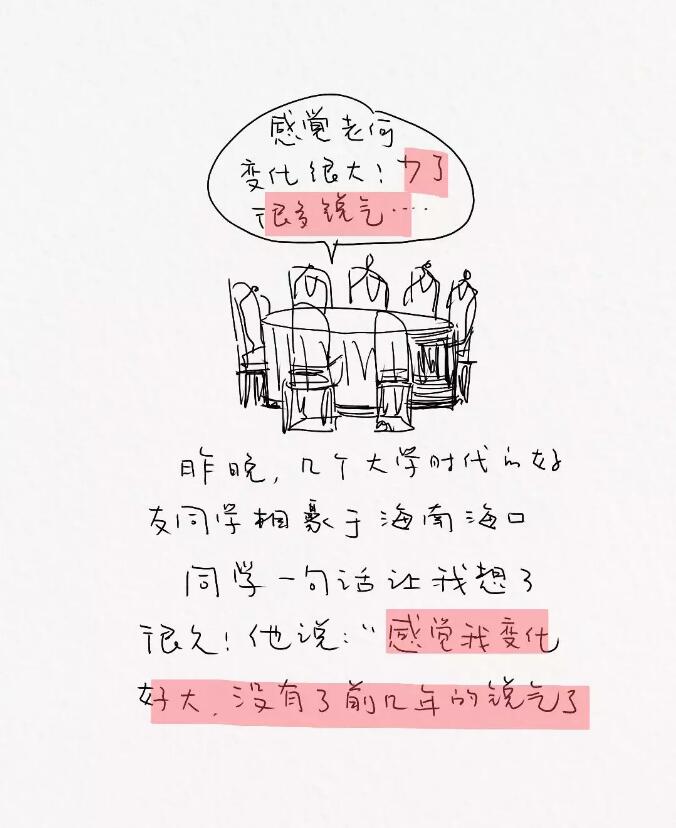 感觉老何
变化很大！少了
很多锐气……
昨晚，几个大学时代的好
友同学相聚于海南海口
同学一句话让我想了
很久！他说：“感觉我变化
好大，没有了前几年的锐气了